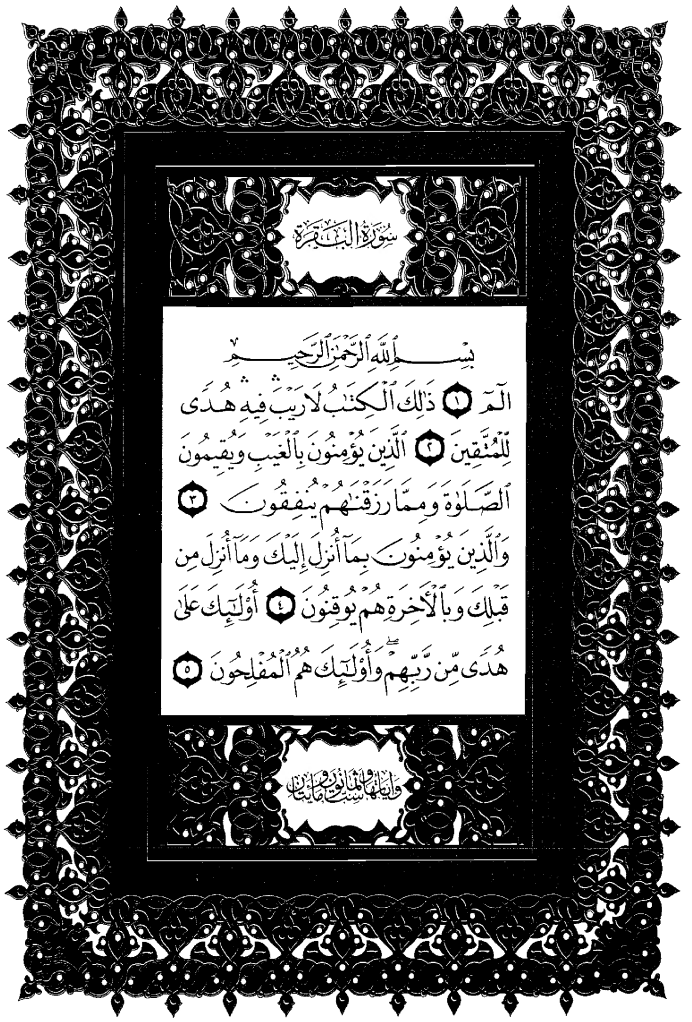 سُورَةُ البَقَرَة
بِسۡمِ ٱللَّهِ ٱلرَّحۡمَٰنِ ٱلرَّحِيمِ
الٓمٓ ١ ذَٰلِكَ ٱلۡكِتَٰبُ لَا رَيۡبَۛ فِيهِۛ هُدٗى
لِّلۡمُتَّقِينَ ٢ ٱلَّذِينَ يُؤۡمِنُونَ بِٱلۡغَيۡبِ وَيُقِيمُونَ
ٱلصَّلَوٰةَ وَمِمَّا رَزَقۡنَٰهُمۡ يُنفِقُونَ ٣
وَٱلَّذِينَ يُؤۡمِنُونَ بِمَآ أُنزِلَ إِلَيۡكَ وَمَآ أُنزِلَ مِن
قَبۡلِكَ وَبِٱلۡأٓخِرَةِ هُمۡ يُوقِنُونَ ٤ أُوْلَٰٓئِكَ عَلَىٰ
هُدٗى مِّن رَّبِّهِمۡۖ وَأُوْلَٰٓئِكَ هُمُ ٱلۡمُفۡلِحُونَ ٥
وَآيَاتُهَا سِتٌّ وَثَمَانُونَ وَمِائَتَانِ